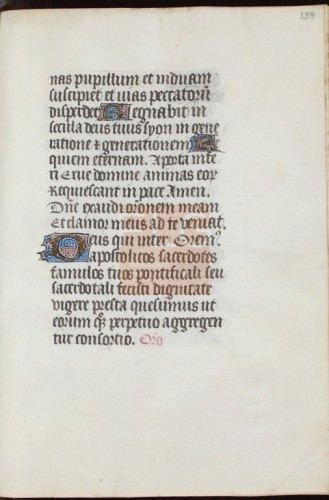 129
nas pupillum et viduam
suscipiet et vias peccatorū
disperdet Regnabit in
secula deus tuus syon in gene
ratione ⁊ generationem Re
quiem eternam. A porta infe
ri Erue domine animas eoꝝ
Requiescant in pace Amen.
Dn̄e exaudi or̄onem meam
Et clamor meus ad te veniat.
Deus qui inter Orem⁹.
apostolicos sacerdotes
famulos tuos pontificali seu
sacerdotali fecisti dignitate
vigere presta quesumus ut
eorum qꝫ perpetuo aggregen
tur consorcio. Oro